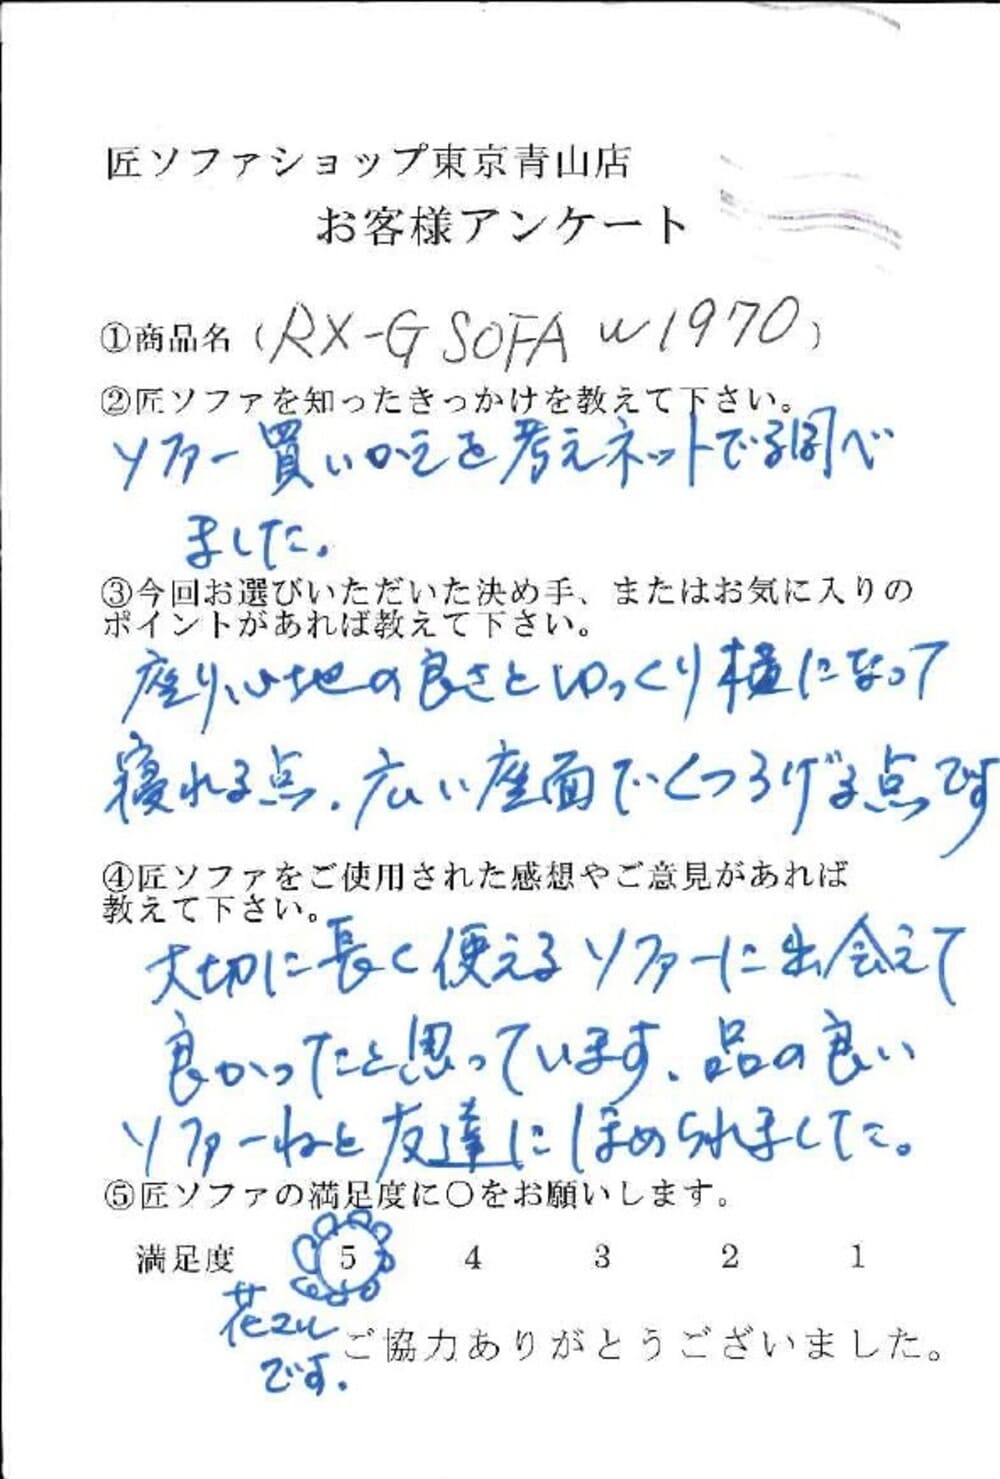 匠ソファショップ東京青山店
お客様アンケート
①商品名（RX-G SOFA W1970）
②匠ソファを知ったきっかけを教えて下さい。
ソファー買いかえを考えネットで調べ
ました。
③今回お選びいただいた決め手、またはお気に入りの
ポイントがあれば教えて下さい。
座り心地の良さとゆっくり横になって
寝れる点、広い座面でくつろげる点です
④匠ソファをご使用された感想やご意見があれば
教えて下さい。
大切に長く使えるソファーに出会えて
良かったと思っています、品の良い
ソファーねと友達にほめられました。
⑤匠ソファの満足度に○をお願いします。
満足度 5 4 3 2 1
花マル
です.
ご協力ありがとうございました。